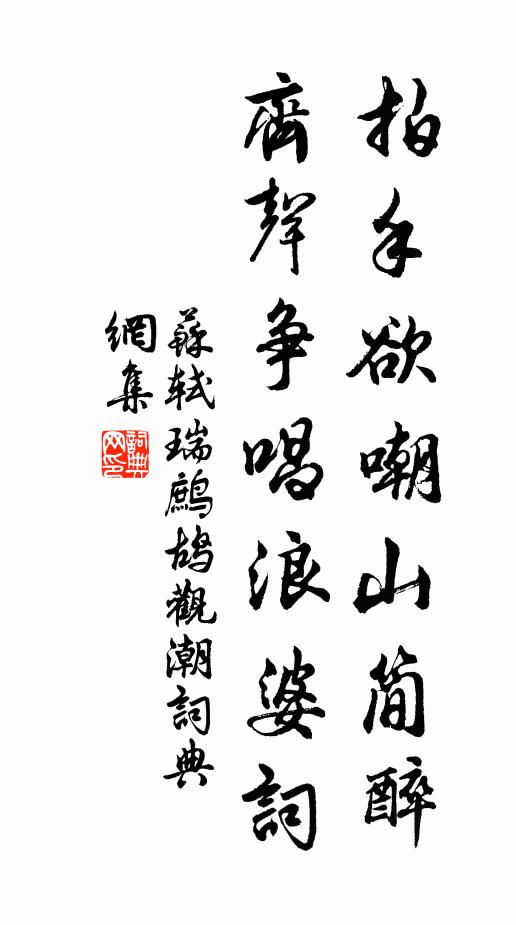 拍手欲嘲山简醉
齊聲爭唱浪婆詞
蘇軾瑞鷓鴣觀潮詞典
網集
詞典
网印